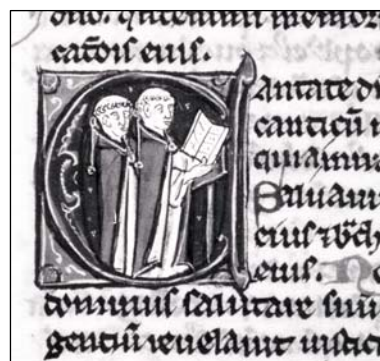 memor
catōis eius.
Cantate dn
canticū n
quia mira
Saluauit
eius ⁊ bͣch
eius. No
dominus salutare suū
gentiū reuelauit iustici